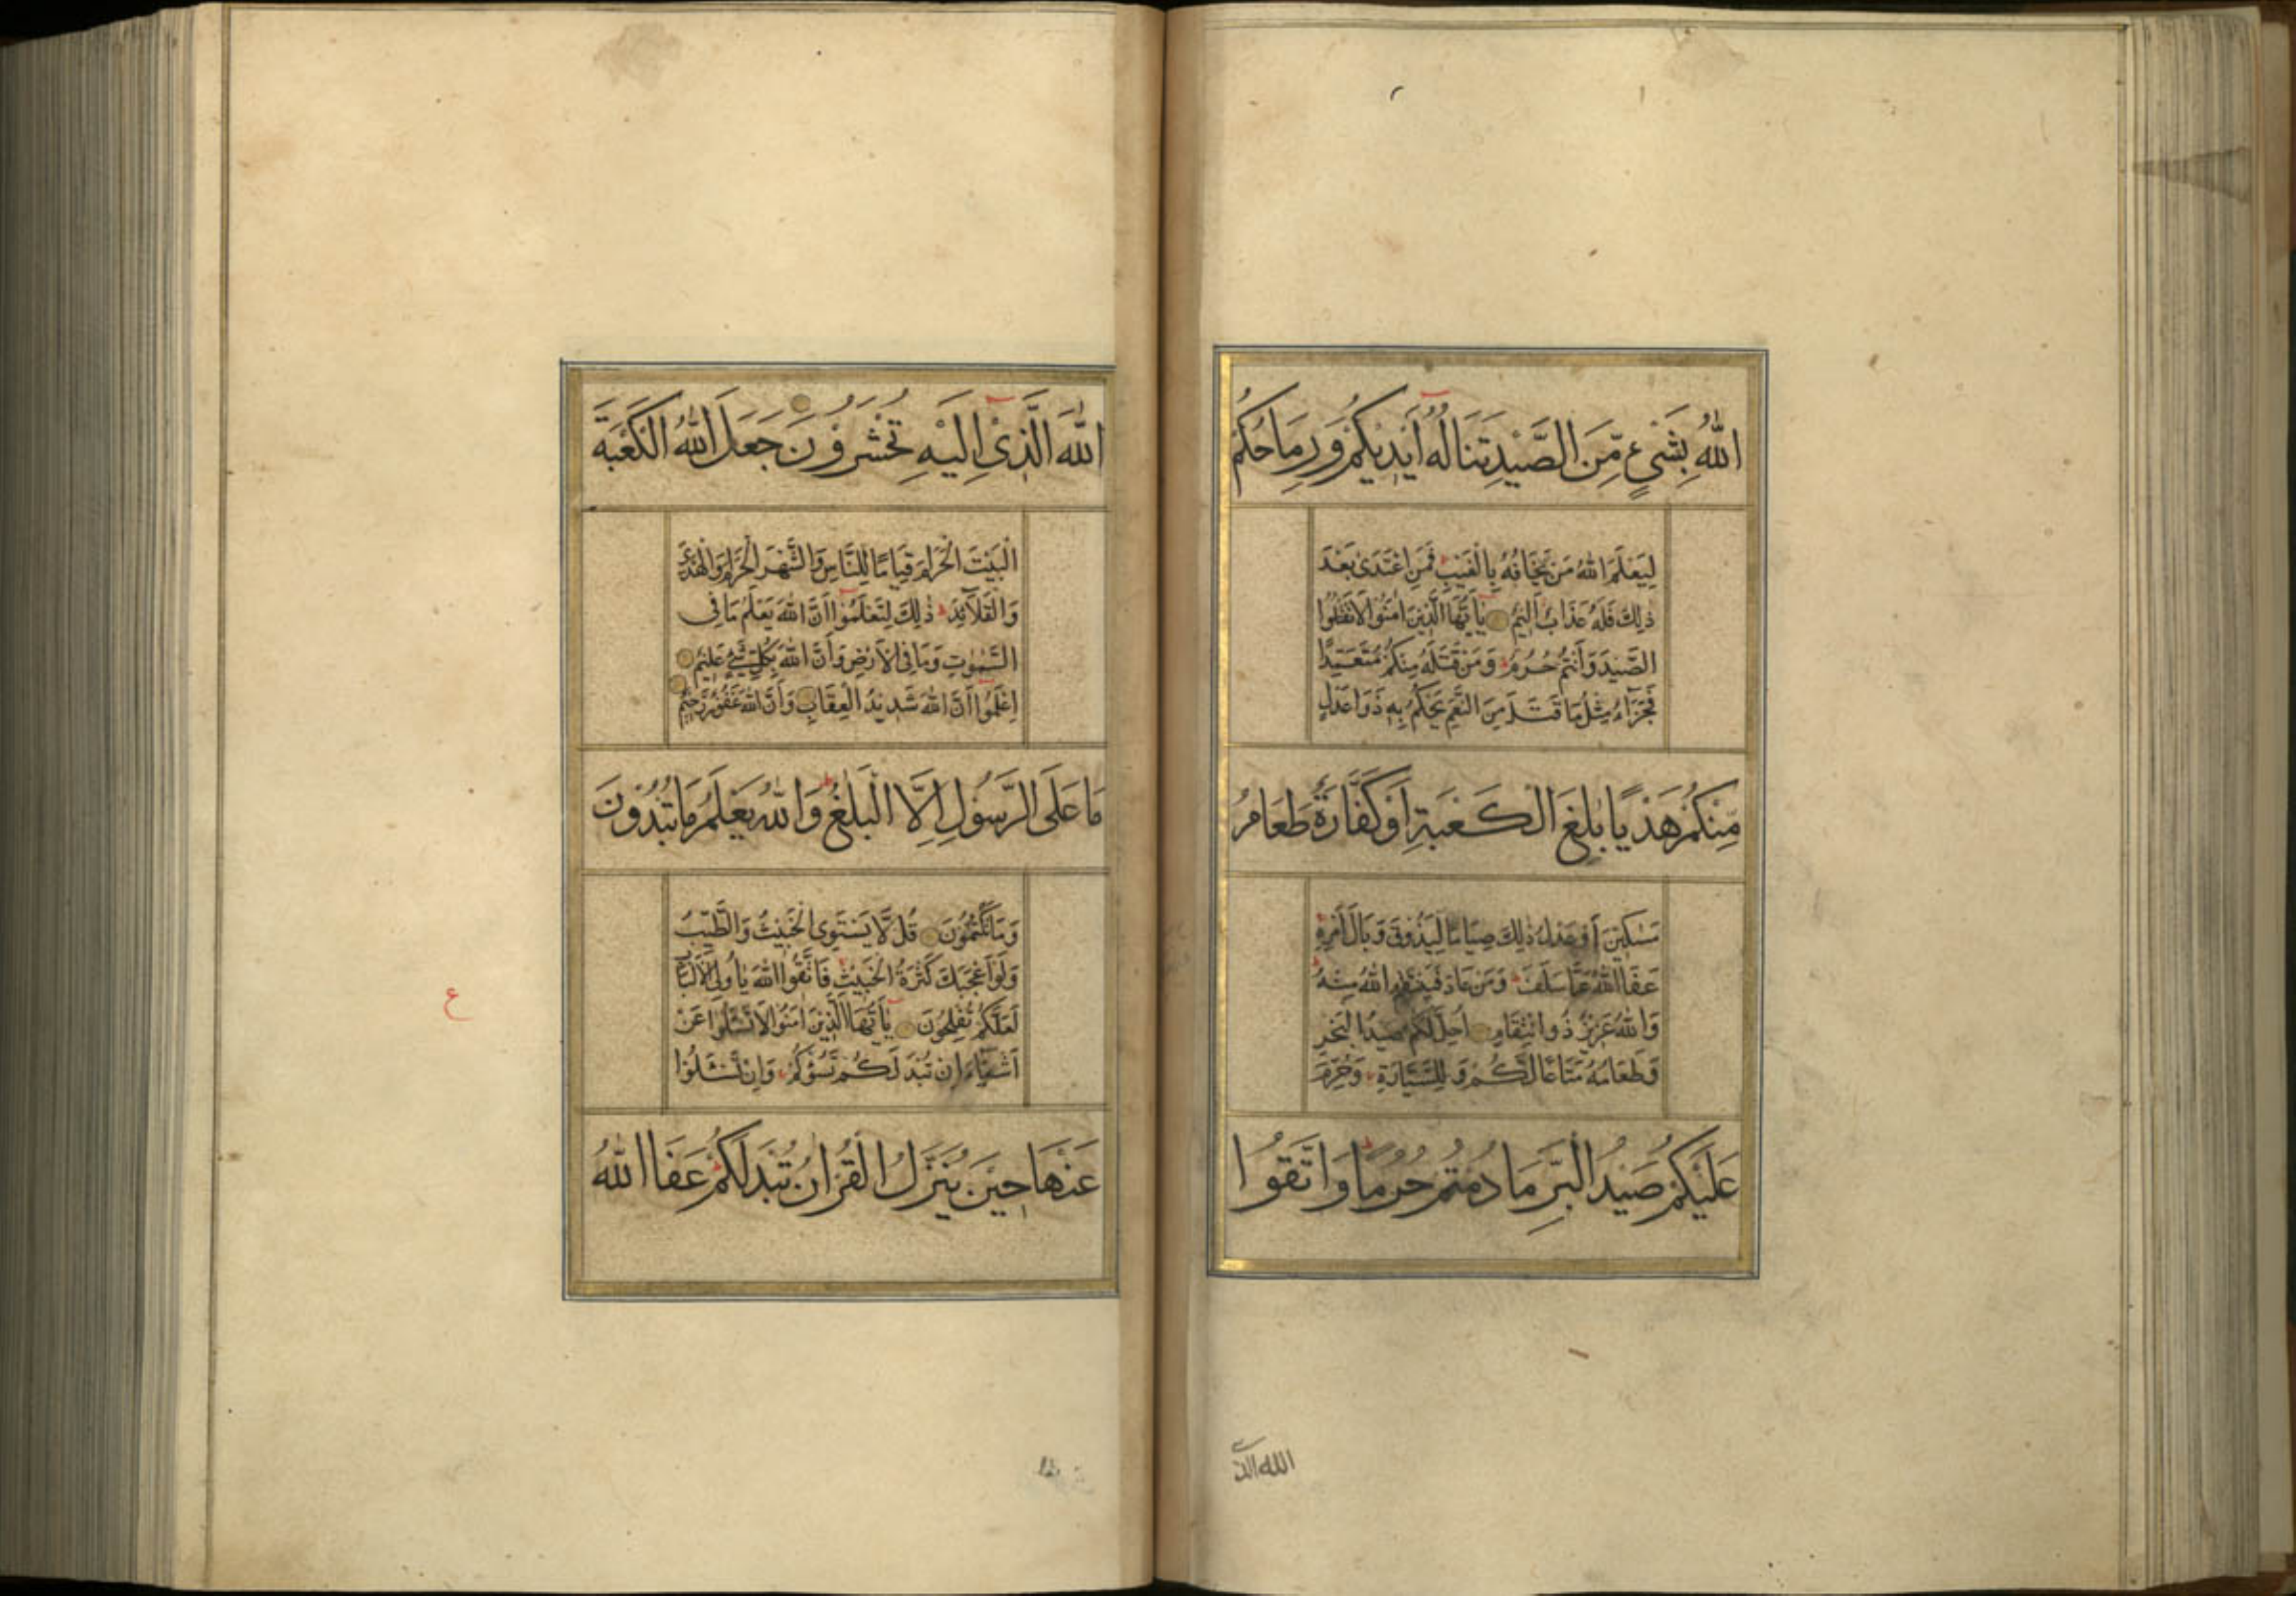 اللّٰهُ بِشَیْءٍ مِّنَ الصَّيْدِ تَنَالُهٗٓ اَيْدِيْكُمْ وَرِمَاحُكُمْ
لِيَعْلَمَ اللّٰهُ مَنْ يَّخَافُهٗ بِالْغَيْبِ ۚ فَمَنِ اعْتَدٰى بَعْدَ
ذٰلِكَ فَلَهٗ عَذَابٌ اَلِيْمٌ يٰٓاَيُّهَا الَّذِيْنَ اٰمَنُوْا لَا تَقْتُلُوا
الصَّيْدَ وَاَنْتُمْ حُرُمٌ ط وَمَنْ قَتَلَهٗ مِنْكُمْ مُّتَعَمِّدًا
فَجَزَآءٌ مِّثْلُ مَا قَتَلَ مِنَ النَّعَمِ يَحْكُمُ بِهٖ ذَوَا عَدْلٍ
مِّنْكُمْ هَدْيًا بٰلِغَ الْكَعْبَةِ اَوْ كَفَّارَةٌ طَعَامُ
مَسٰكِيْنَ اَوْ عَدْلُ ذٰلِكَ صِيَامًا لِّيَذُوْقَ وَبَالَ اَمْرِهٖ ط
عَفَا اللّٰهُ عَمَّا سَلَفَ ط وَمَنْ عَادَ فَيَنْتَقِمُ اللّٰهُ مِنْهُ ط
وَاللّٰهُ عَزِيْزٌ ذُو انْتِقَامٍ اُحِلَّ لَكُمْ صَيْدُ الْبَحْرِ
وَطَعَامُهٗ مَتَاعًا لَّكُمْ وَلِلسَّيَّارَةِ ۚ وَحُرِّمَ
عَلَيْكُمْ صَيْدُ الْبَرِّ مَا دُمْتُمْ حُرُمًا ط وَاتَّقُوا
الله الذ
اللّٰهَ الَّذِیْٓ اِلَيْهِ تُحْشَرُوْنَ جَعَلَ اللّٰهُ الْكَعْبَةَ
الْبَيْتَ الْحَرَامَ قِيَامًا لِّلنَّاسِ وَالشَّهْرَ الْحَرَامَ وَالْهَدْیَ
وَالْقَلَآئِدَ ط ذٰلِكَ لِتَعْلَمُوْٓا اَنَّ اللّٰهَ يَعْلَمُ مَا فِی
السَّمٰوٰتِ وَمَا فِی الْاَرْضِ وَاَنَّ اللّٰهَ بِكُلِّ شَیْءٍ عَلِيْمٌ
اِعْلَمُوْٓا اَنَّ اللّٰهَ شَدِيْدُ الْعِقَابِ وَاَنَّ اللّٰهَ غَفُوْرٌ رَّحِيْمٌ
مَا عَلَى الرَّسُوْلِ اِلَّا الْبَلٰغُ ط وَاللّٰهُ يَعْلَمُ مَا تُبْدُوْنَ
وَمَا تَكْتُمُوْنَ قُلْ لَّا يَسْتَوِی الْخَبِيْثُ وَالطَّيِّبُ
وَلَوْ اَعْجَبَكَ كَثْرَةُ الْخَبِيْثِ ۚ فَاتَّقُوا اللّٰهَ يٰٓاُولِی الْاَلْبَابِ
لَعَلَّكُمْ تُفْلِحُوْنَ يٰٓاَيُّهَا الَّذِيْنَ اٰمَنُوْا لَا تَسْئَلُوْا عَنْ
اَشْيَآءَ اِنْ تُبْدَ لَكُمْ تَسُؤْكُمْ ۚ وَاِنْ تَسْئَلُوْا
عَنْهَا حِيْنَ يُنَزَّلُ الْقُرْاٰنُ تُبْدَ لَكُمْ ط عَفَا اللّٰهُ
ع